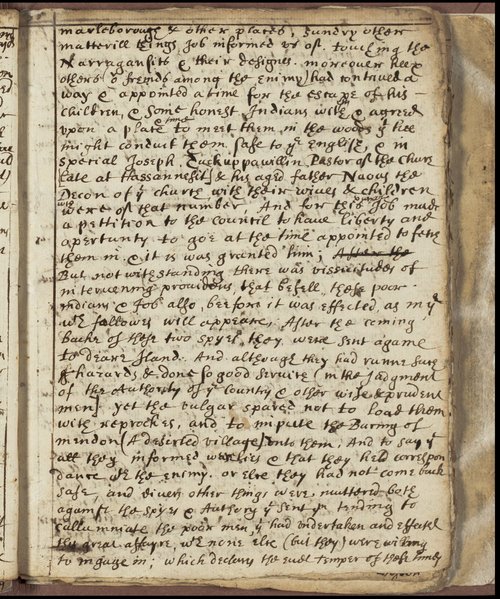 marleborough & other places, sundry other
matterill things Job informed us of. touching the
Narragansits & their designes. moreover hee &
others o frends among the enimy had contrived a
way & appointed a time for the escape of his
children, & some honest Indians with & agreed
upon a place & time to meet them, in the woods yt hee
might conduct them safe to ye English, & in
special Joseph, Tuckuppawillin Pastor of the Church
late at Hassannesit & his aged father Naous the
Decon of yt church with their wives & children
wth were of that number. And for this purpose Job made
a pettition to the council to have liberty and
opertunty to goe at the time appointed to fetch
them in & it was granted him; After the
But notwithstanding there was vissicitudes of
intervening providens, that befell, these poor
indians & Job also, beefore it was effected, as in yt
wch followes will appeare, After the coming
backe of these two spyes, they were sent againe
to Deare Iland. And although they had runne such
hazards & done so good service (in the judgment
of the Authority of ye country & other wise & prudent
men) yet the vulgar spared not to load them
with reproches, and to impute the Burning of
mendon (A deserted village) unto them, And to say yt
all they informed were lies & that they held correspon
dance wth the enemy. or else they had not come back
safe, and divers other things were, muttered both
against the spyes & Authory yt sent ym tending to
Calluminiate the poor men yt had undertaken and effected
this great affayre, wch none else (but they) were willing
to ingage in; which declares the evel temper of these times